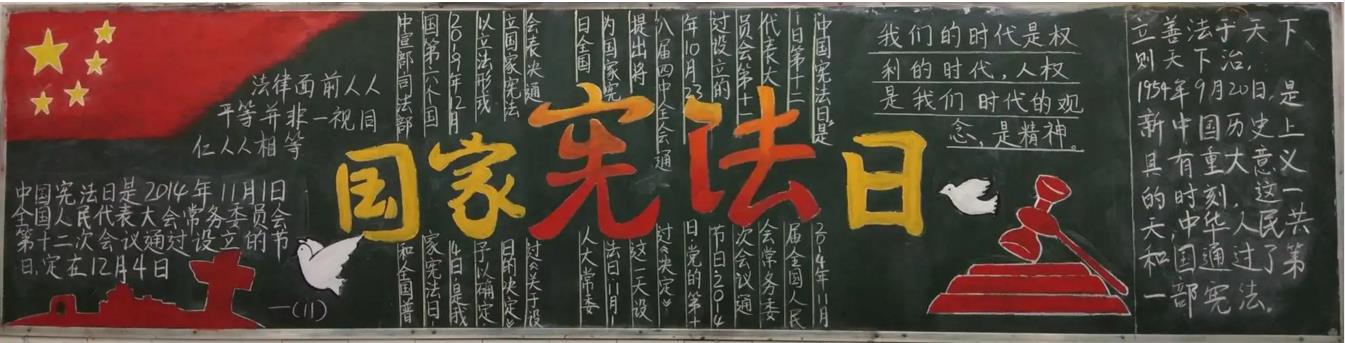 法律面前人人
平等并非一视同
仁人人相等
中国宪法日是2014年11月1日
全国人民代表大会常务委员会
第十二次会议通过设立的节
日,定在12月4日
一(11)
国家宪法日
中国宪法日是2014年11月
1日第十二届全国人民
代表大会常务委
员会第十一次会议通
过设立的节日2014
年10月23日党的第十
八届四中全会通过《决定》
提出将这一天设
内国家宪法日11月1
日全国人大常委
会表决通过《关于设
立国家宪法日的决定》
以立法形式予以确定
2019年12月4日是我
国第六个国家宪法日
中宣部司法部和全国普
我们的时代是权
利的时代,人权
是我们时代的观
念,是精神。
立善法于天下
则天下治,
1954年9月20日,是
新中国历史上
具有重大意义
的时刻,这一
天,中华人民共
和国通过了第
一部宪法。